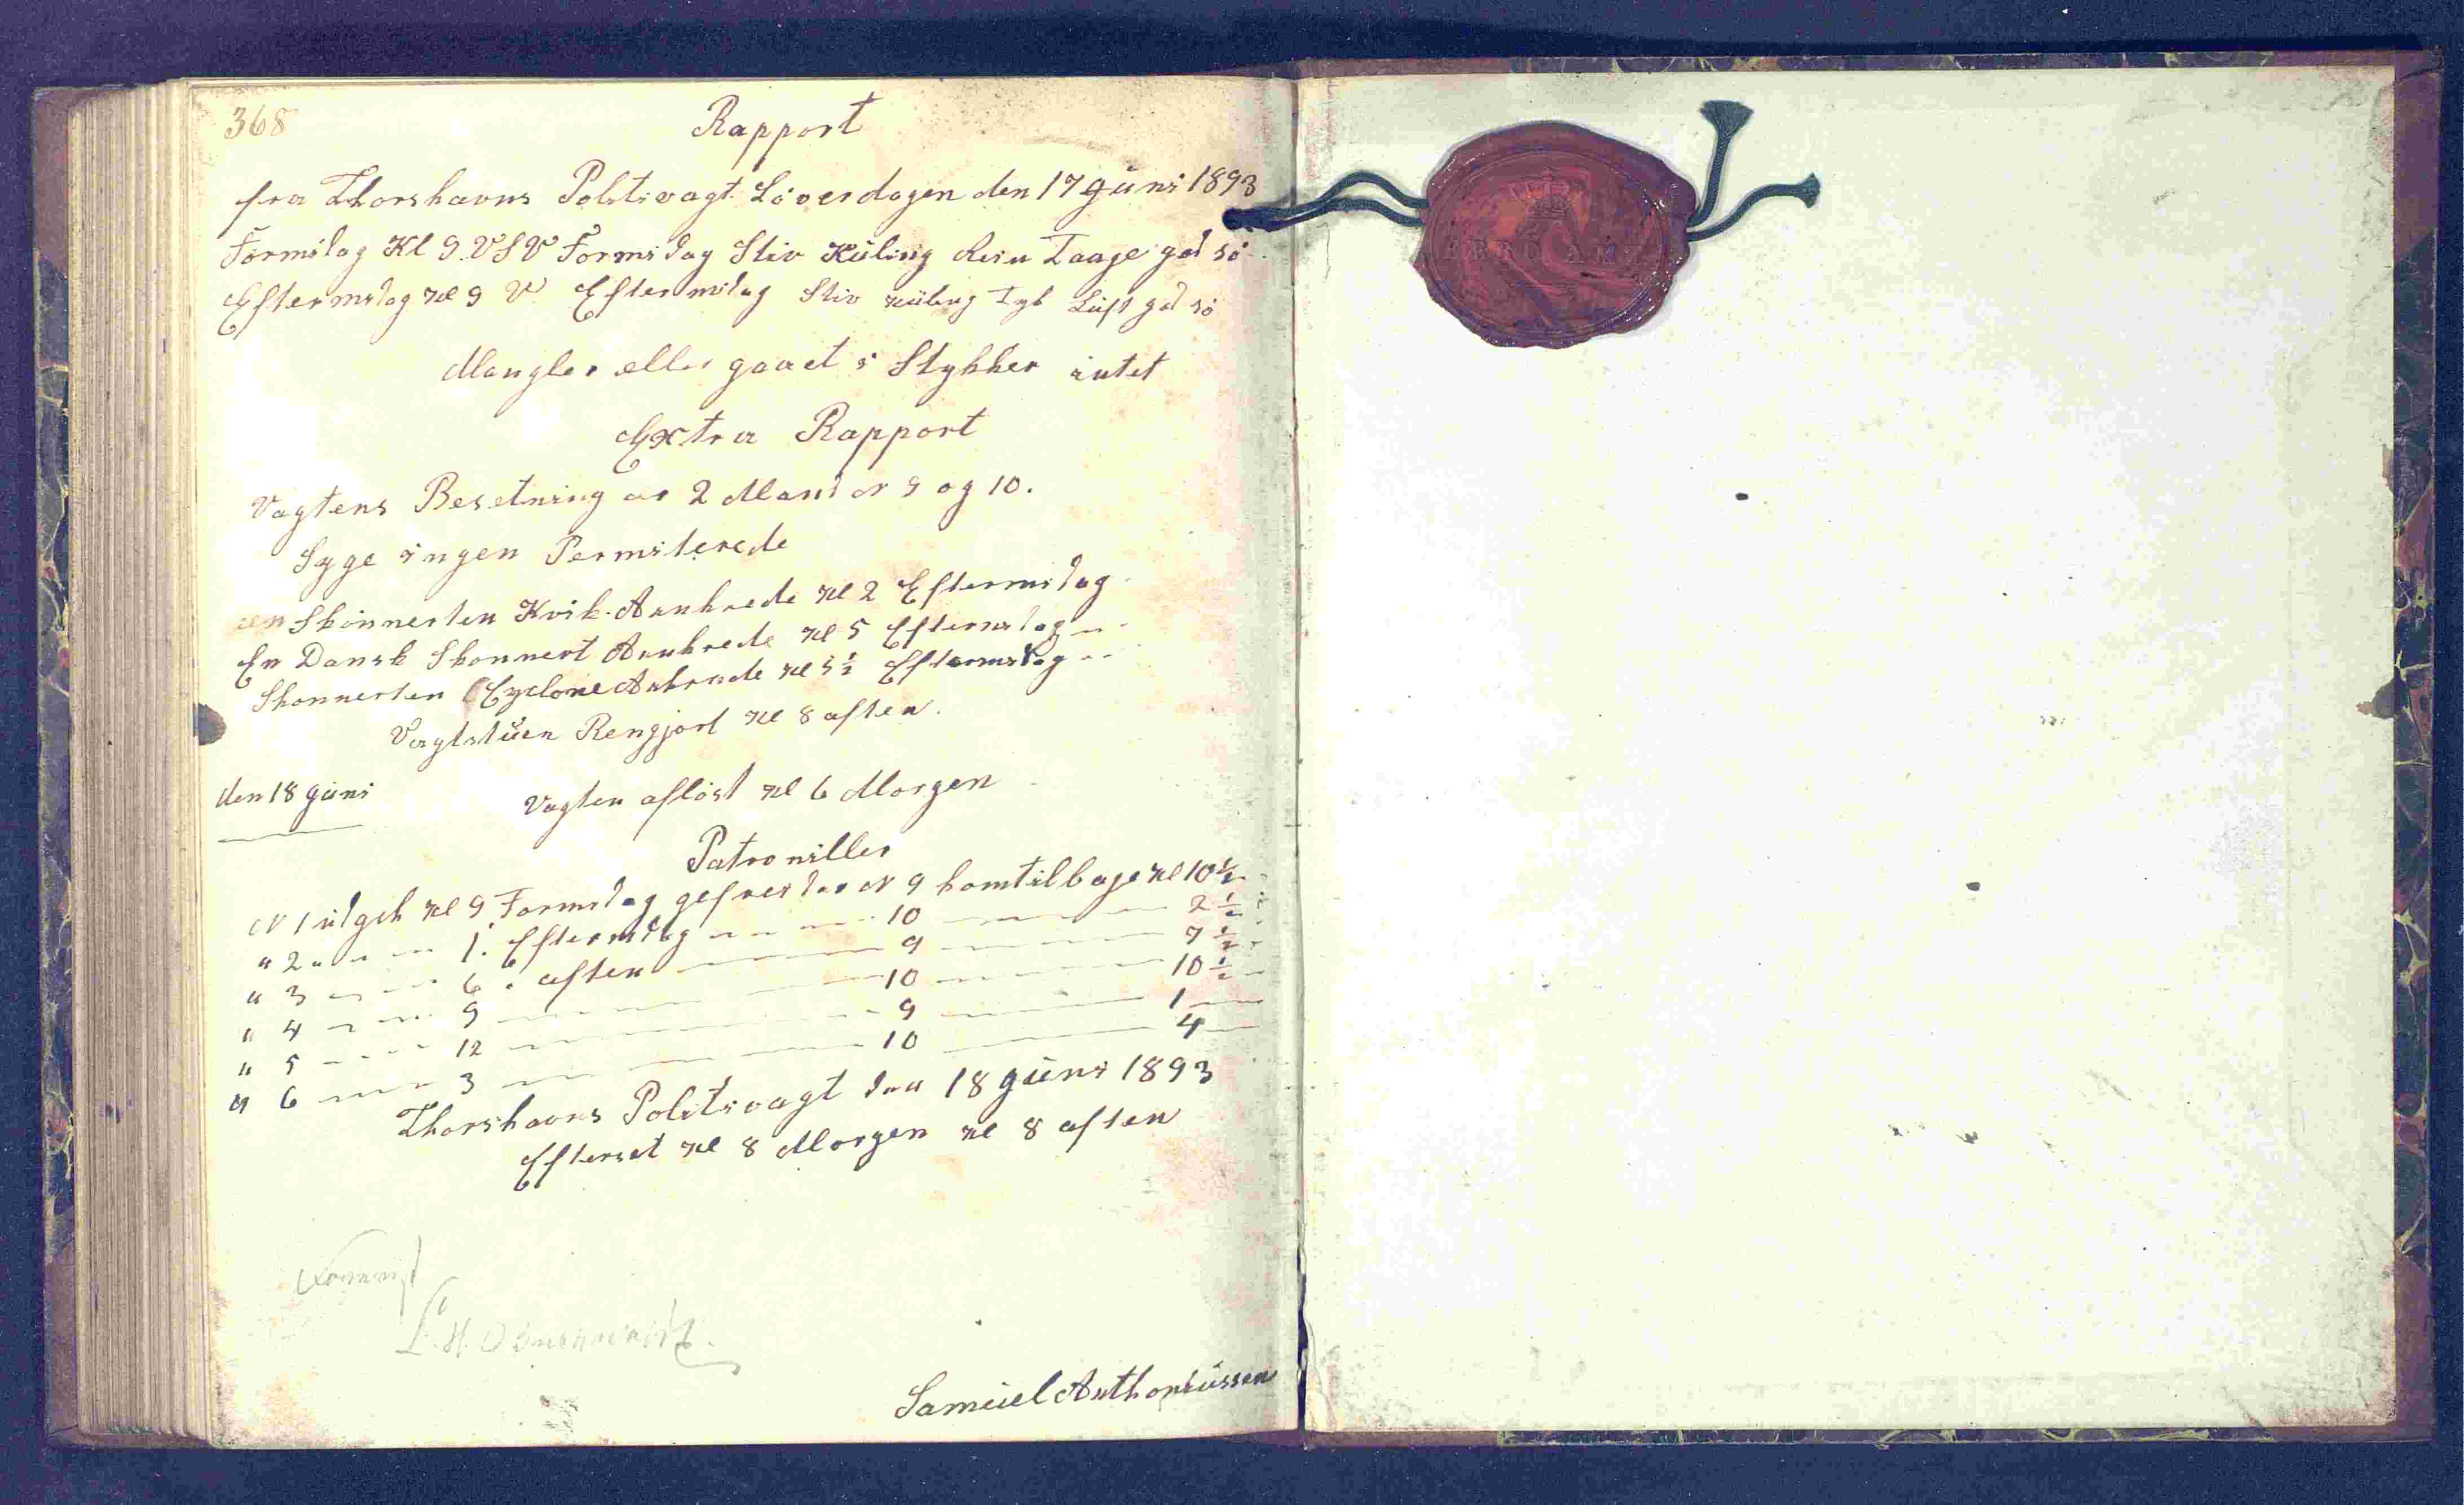 368
Rapport
fra Thorshavns Politivagt Löverdagen den 17 Juni 1893
Formidag Kl 9. VSV Formidag Stiv Küling Rein Taage god sö
Eftermidag Kl 9 V Eftermidag Stiv Küling Tyk Luft god sö
Mangler eller gaaet i Stykker intet
Extra Rapport
Vagtens Besetning ar 2 Mand N 9 og 10.
Syge ingen Permiterede
Skonnerten Kvik Annkrede Kl 2 Eftermidag
En Dansk Skonnert Annkrede Kl 5 Eftermidag
Skonnerten Cyclone Ankrede Kl 5½ Eftermidag
Vagtstuen Rengjort Kl 8 aften.
den 18 Juni Vagten aflöst Kl 6 Morgen
Patroniller
N 1 udgik Kl 9 Formidag gefreider N 9 komtilbage Kl 10½
" 2 " 1. Eftermidag 10 2½
" 3 6 . aften 9 7½
" 4 9 10 10½
" 5 12 9 1
" 6 3 10 4
Thorshavns Politivagt den 18 Juni 1893
Efterset Kl 8 Morgen Kl 8 aften
L. H.
Samüel Anthoniüssen
FÆRÖ AMT